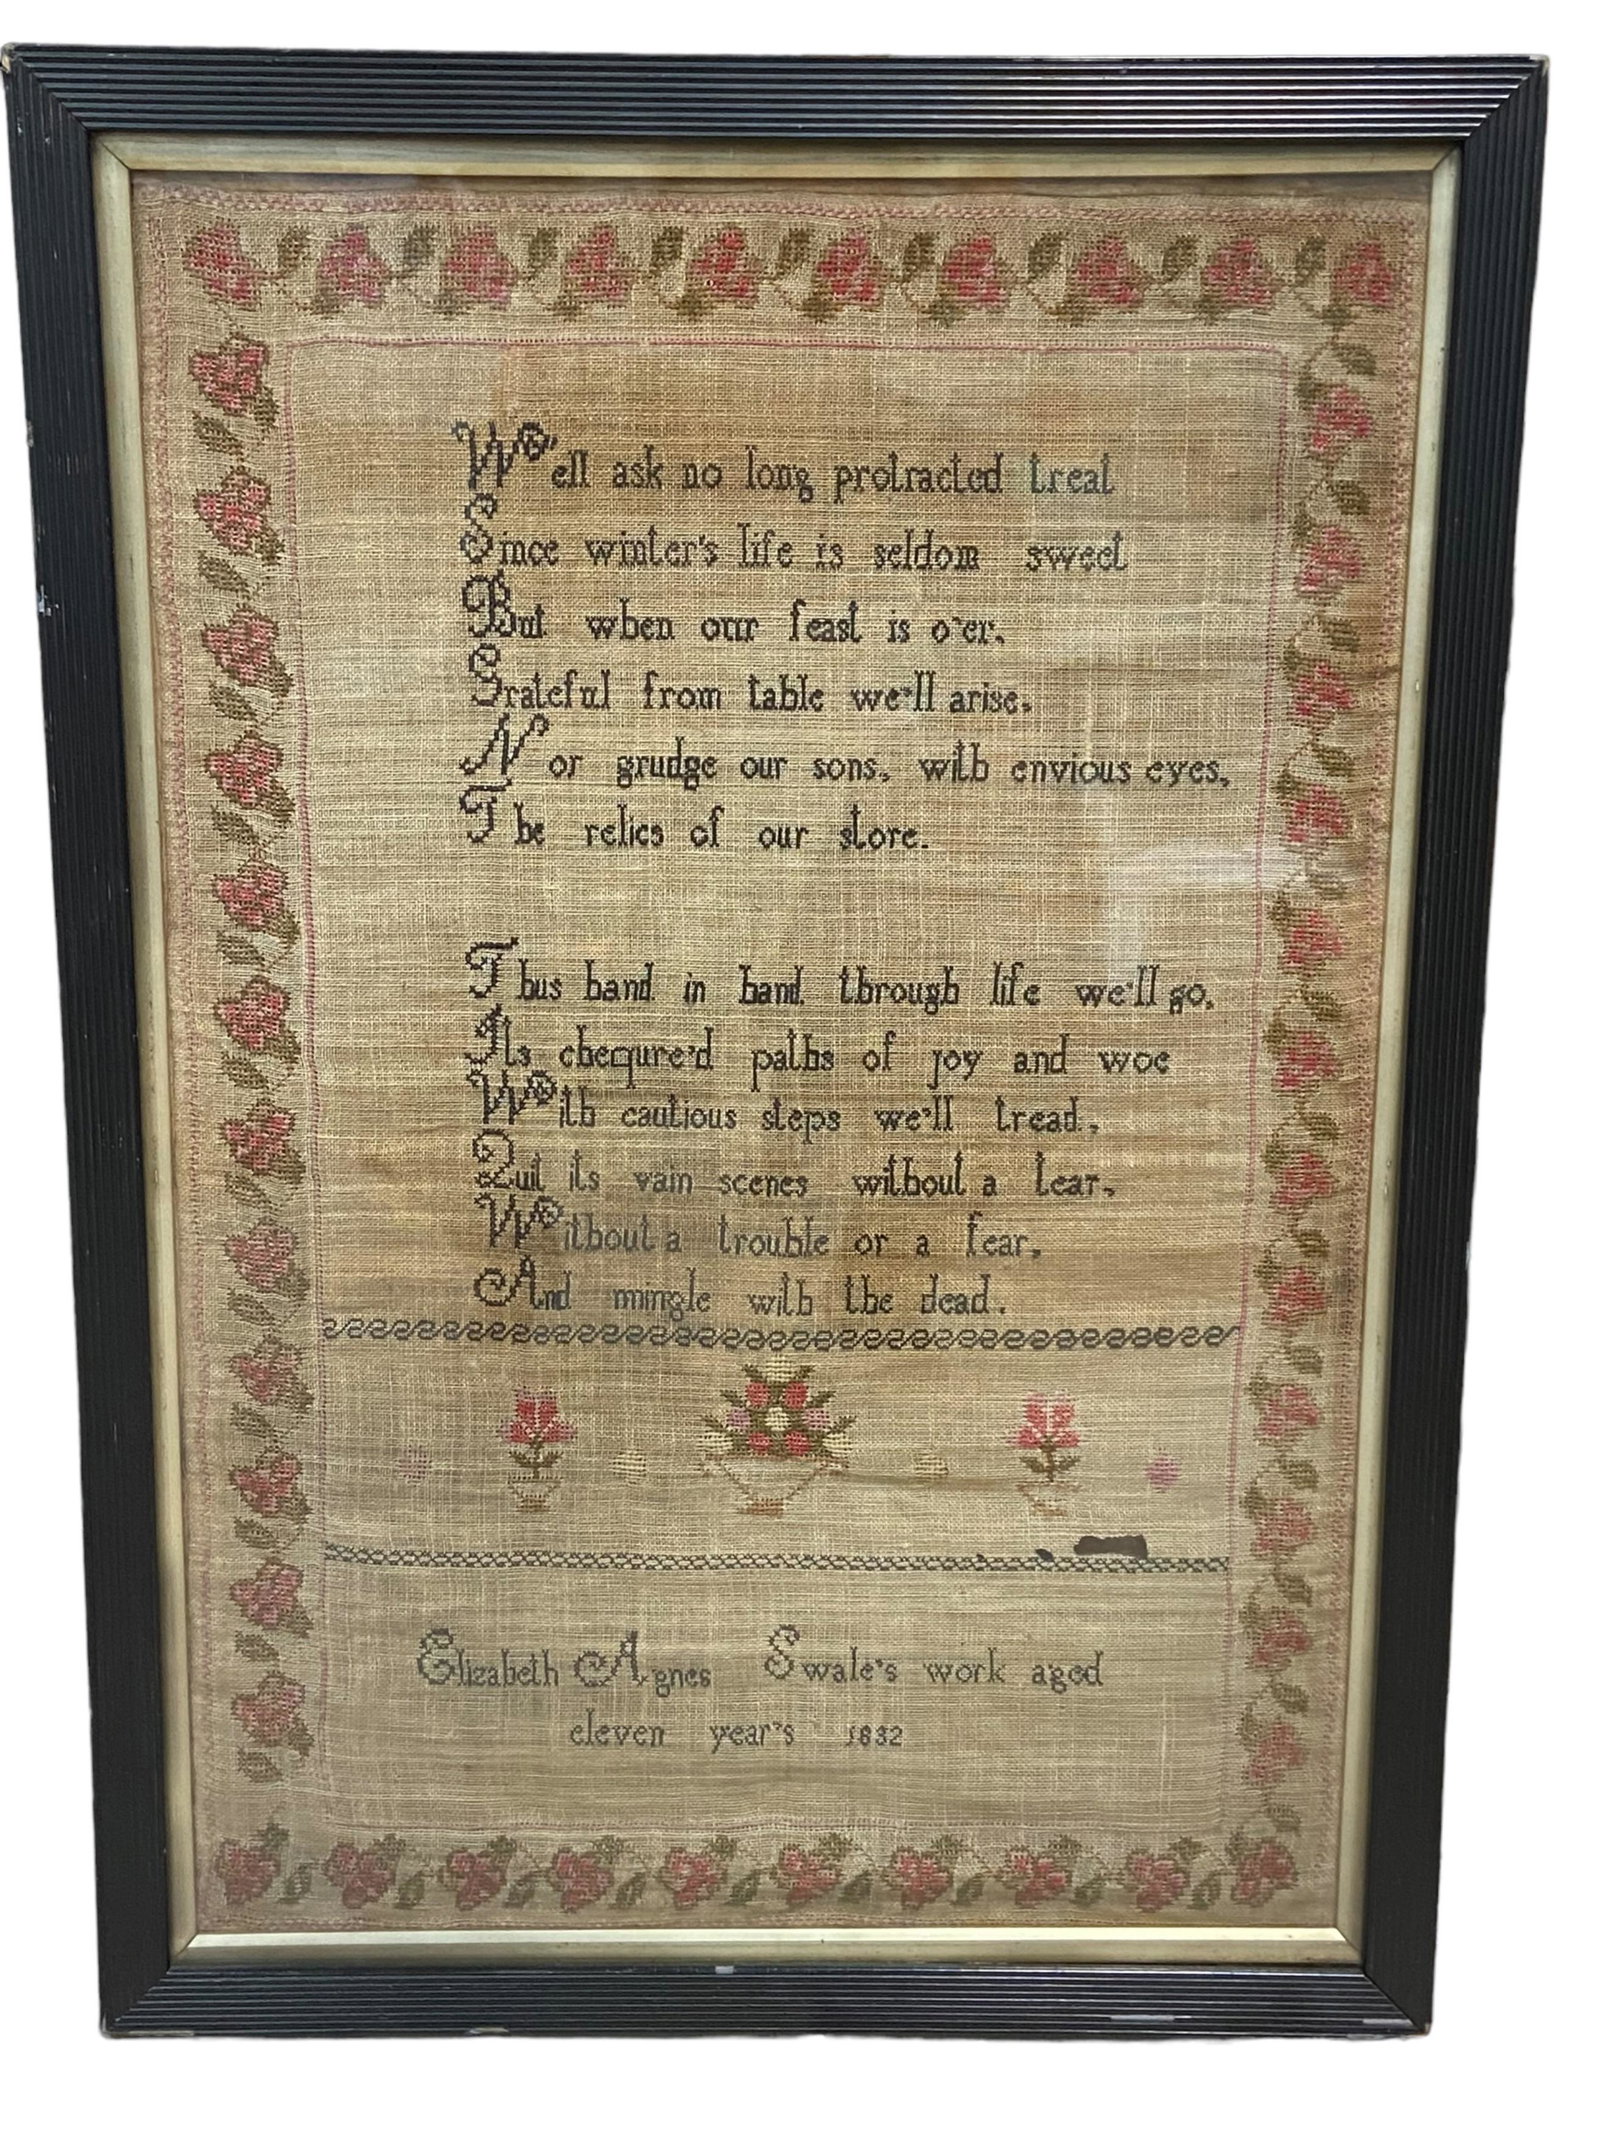 We'll ask no long protracted treat
Since winter's life is seldom sweet
But when our feast is o'er,
Grateful from table we'll arise,
Nor grudge our sons, with envious eyes,
The relics of our store.
Thus hand in hand through life we'll go,
Its chequre'd paths of joy and woe
With cautious steps we'll tread,
Quit its vain scenes without a tear,
Without a trouble or a fear,
And mingle with the dead.
Elizabeth Agnes Swale's work aged
eleven year's 1832